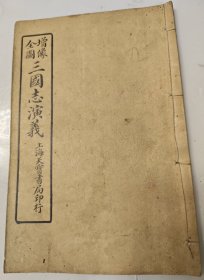 增像全圖三國志演義
上海天寶書局印行